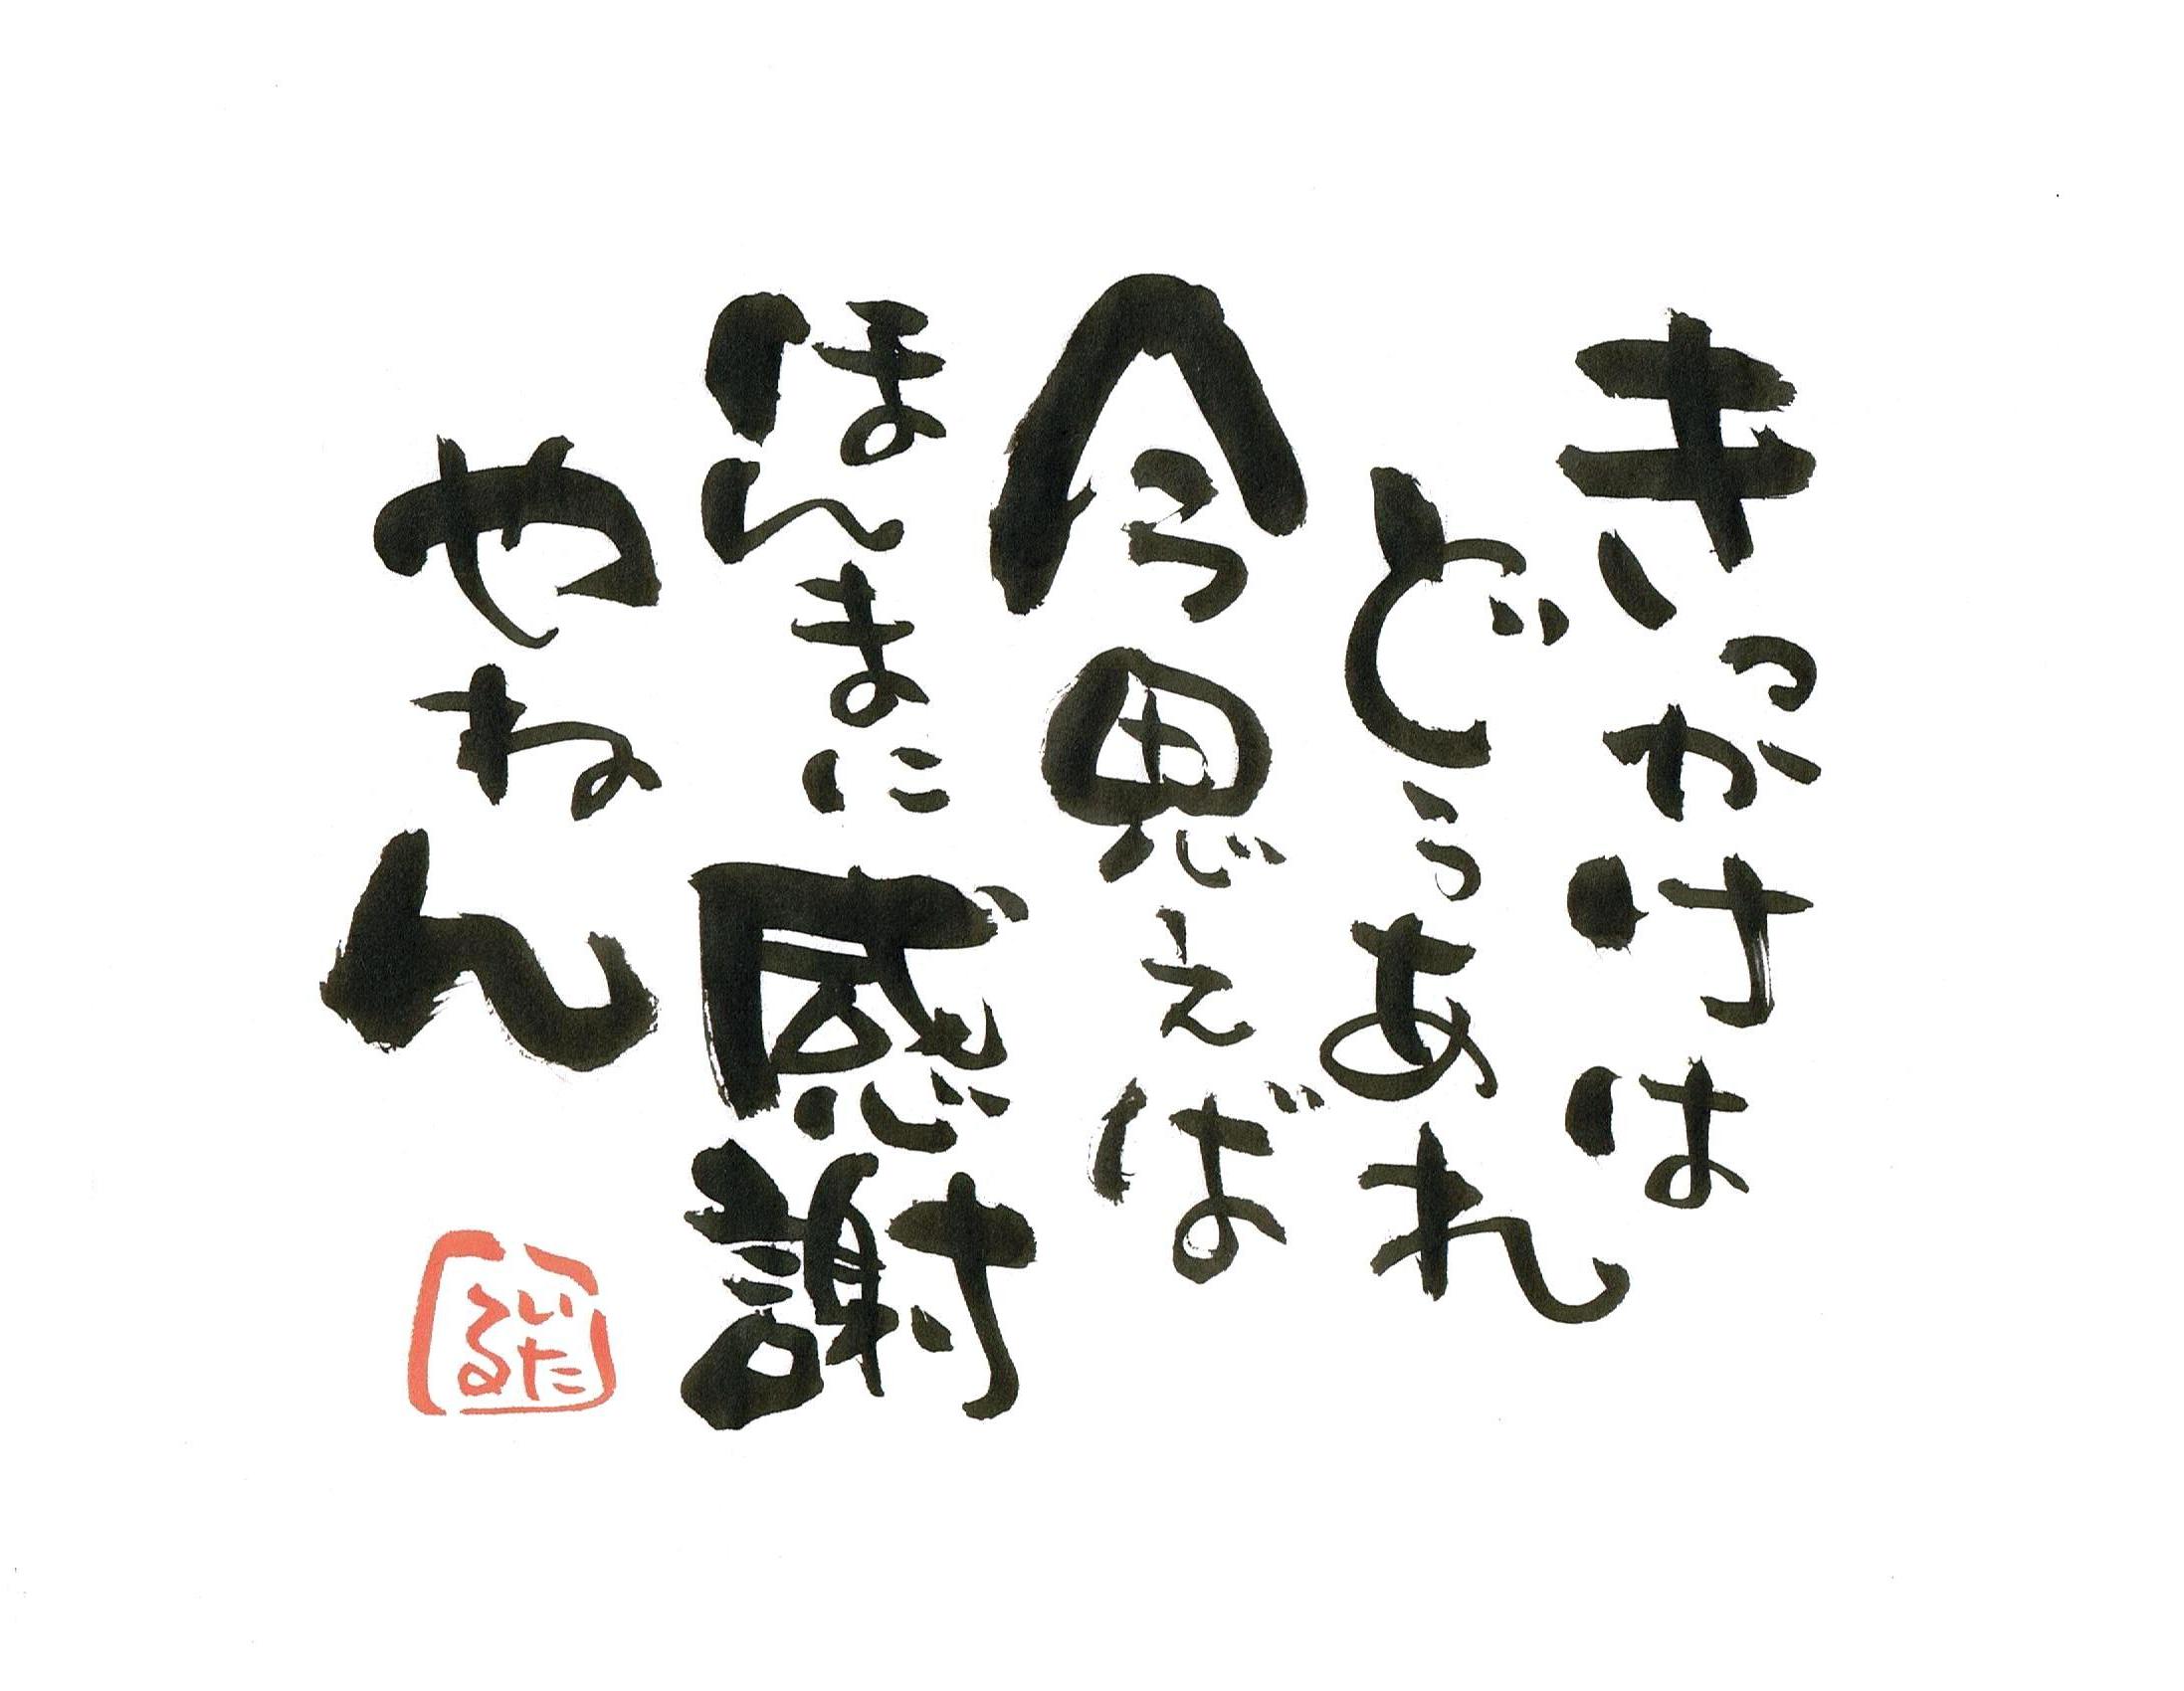 きっかけは
どうあれ
今思えば
ほんまに感謝
やねん
いたる